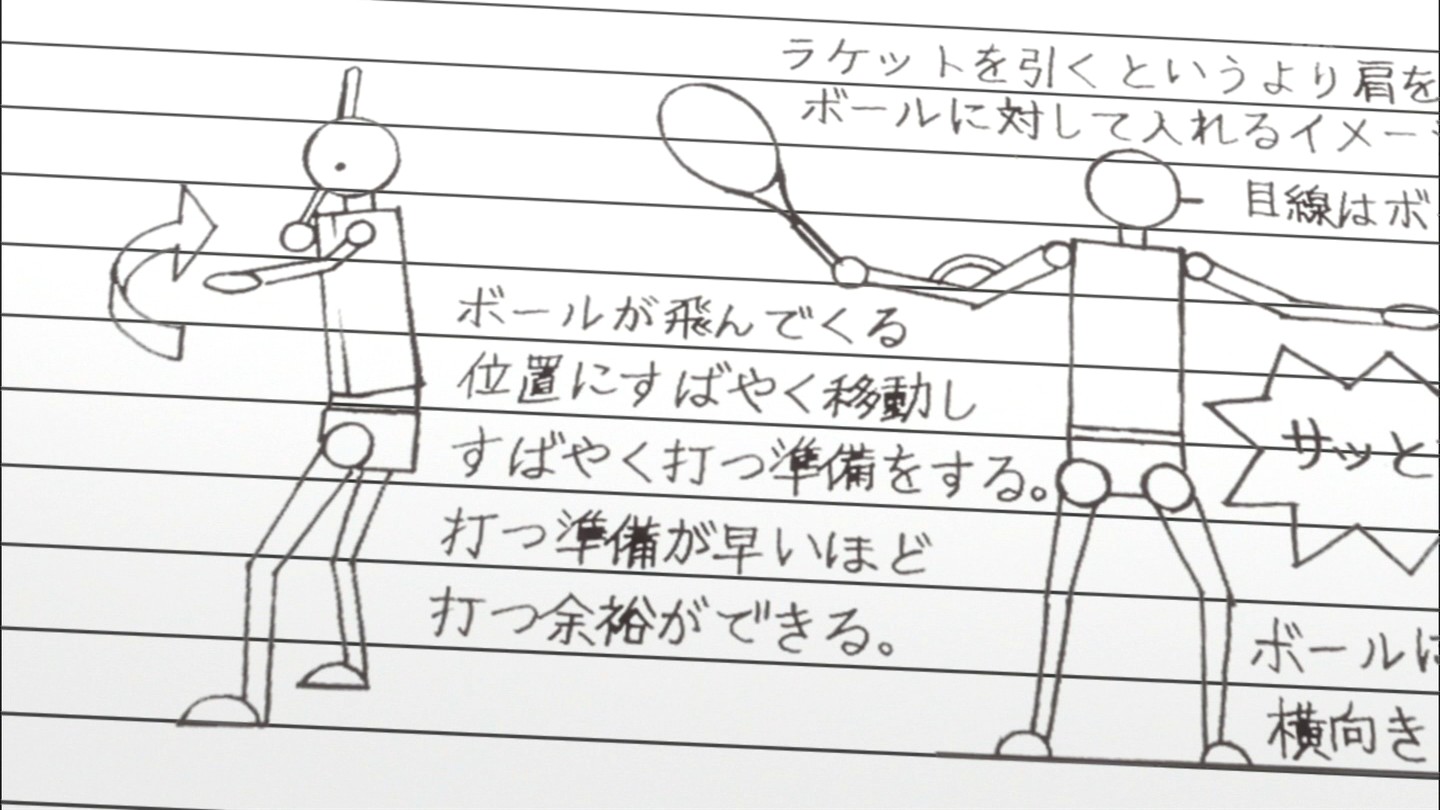 ラケットを引くというより肩を
ボールに対して入れるイメー
目線はボ
ボールが飛んでくる
位置にすばやく移動し
すばやく打つ準備をする。
打つ準備が早いほど
打つ余裕ができる。
サッと
ボールに
横向き